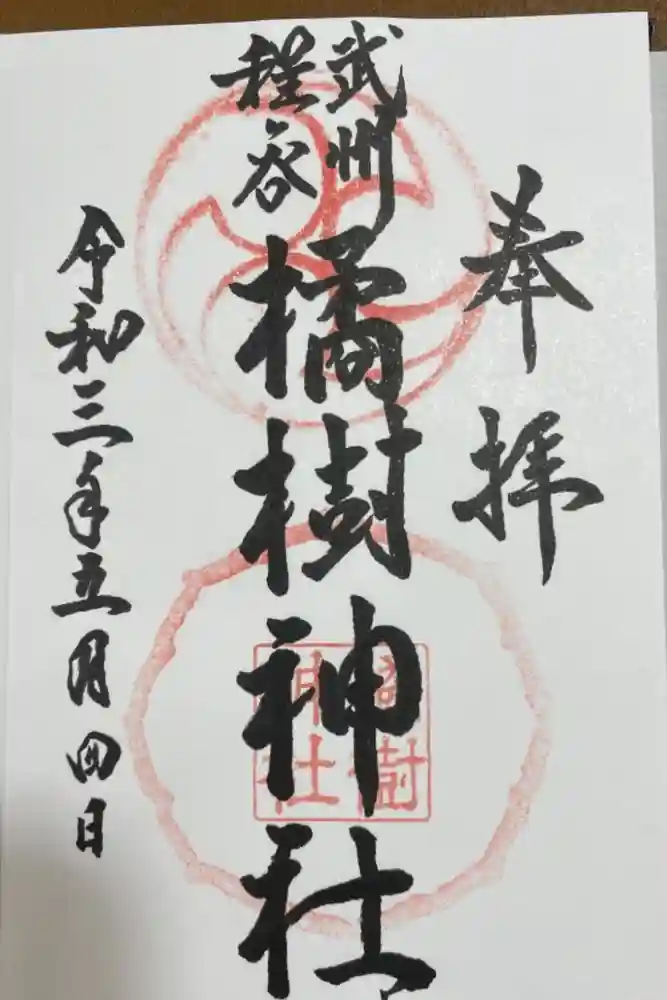 奉拝
武州
程谷
橘樹神社
橘樹
神社
令和三年五月四日